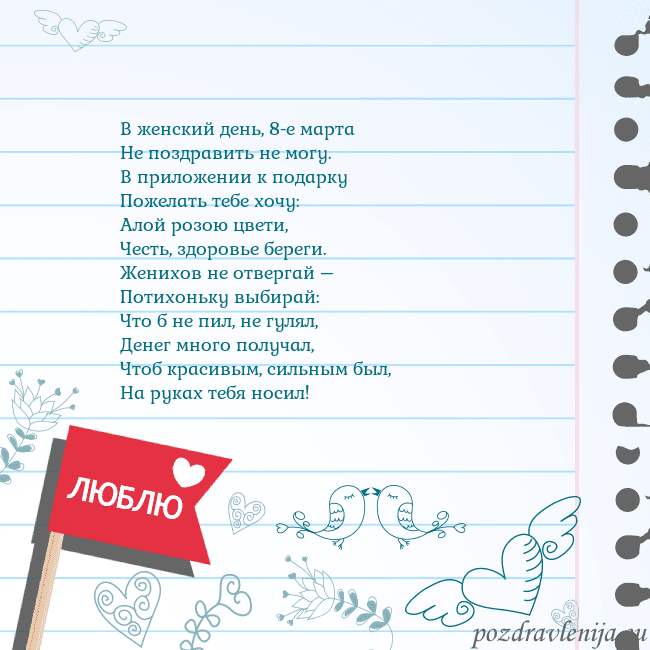 В женский день, 8-е марта
Не поздравить не могу.
В приложении к подарку
Пожелать тебе хочу:
Алой розою цвети,
Честь, здоровье береги.
Женихов не отвергай —
Потихоньку выбирай:
Что б не пил, не гулял,
Денег много получал,
Чтоб красивым, сильным был,
На руках тебя носил!
ЛЮБЛЮ
pozdravlenija.eu